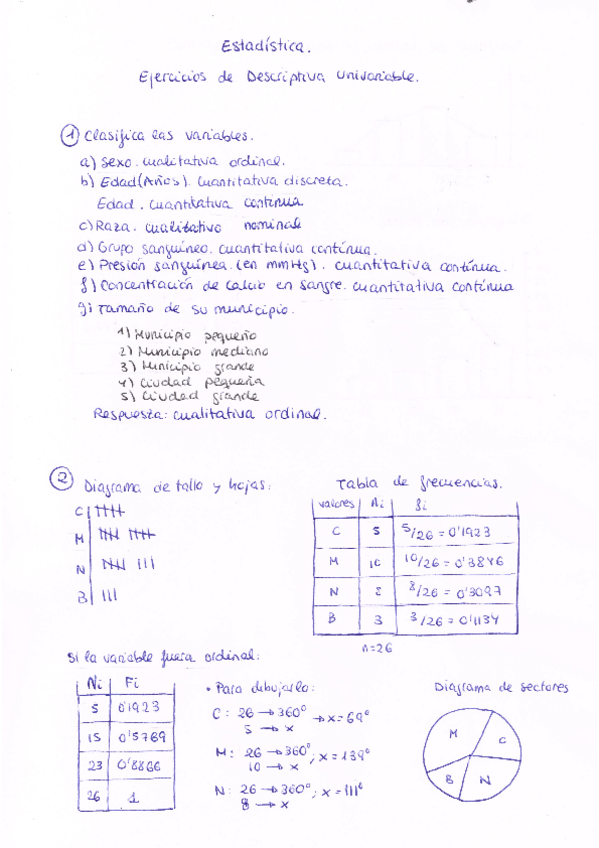 Estadística.
Ejercicios de Descriptiva Univariable.
① Clasifica las variables.
a) Sexo. cualitativa ordinal.
b) Edad (Años). Cuantitativa discreta.
Edad. cuantitativa continua
c) Raza. cualitativo nominal
d) Grupo sanguíneo. cuantitativa contínua.
e) Presión sanguínea. (en mmHg). cuantitativa contínua.
f) Concentración de calcio en sangre. cuantitativa contínua
g) Tamaño de su municipio.
1) Municipio pequeño
2) Municipio mediano
3) Municipio grande
4) Ciudad pequeña
5) Ciudad grande
Respuesta: cualitativa ordinal.
② Diagrama de tallo y hojas:
C
M
N
B
Tabla de frecuencias.
valores ni fi
C 5 5/26 = 0'1923
M 10 10/26 = 0'3846
N 8 8/26 = 0'3097
B 3 3/26 = 0'1134
n=26
Si la variable fuera ordinal:
Ni Fi
5 0'1923
15 0'5769
23 0'8866
26 1
• Para dibujarlo:
C: 26 → 360° → x = 69°
5 → x
M: 26 → 360°; x = 139°
10 → x
N: 26 → 360°; x = 111°
8 → x
Diagrama de sectores
M
C
B
N